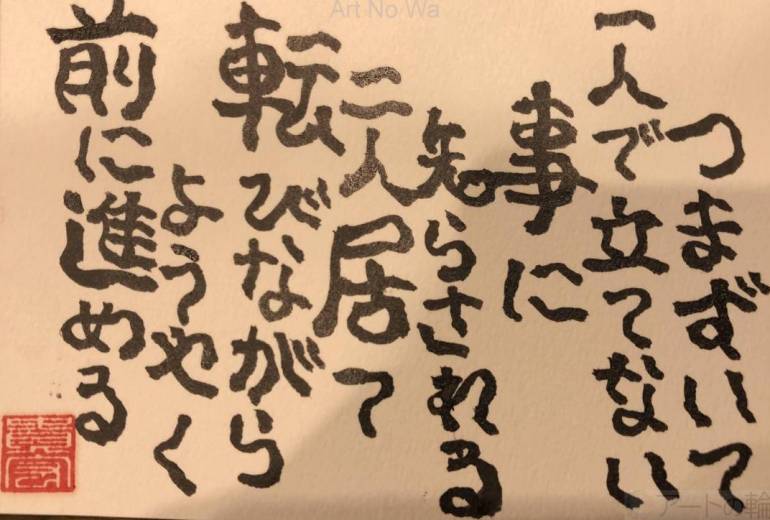 Art No Wa
つまずいて
一人で立てない
事に
知らされる
二人居て
転びながら
ようやく
前に進める
アートの輪